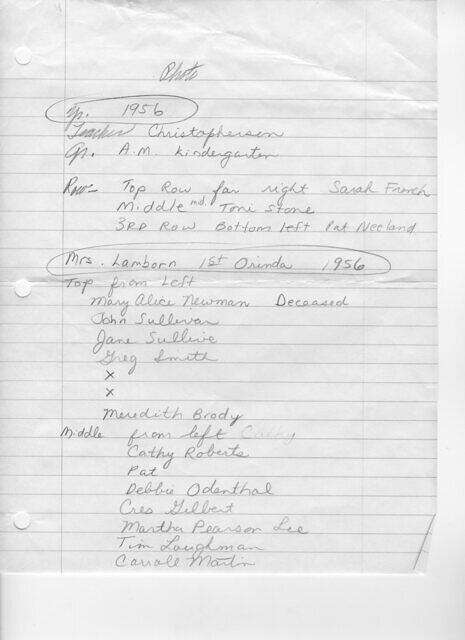 Photo
yr. 1956
Teacher Christopherson
Gr. A.M. Kindergarten
Row- Top Row far right Sarah French
Middle md. Toni Stone
3RD Row Bottom left Pat Neeland
Mrs. Lamborn 1st Orinda 1956
Top from Left
Mary Alice Newman Deceased
John Sullivan
Jane Sullive
Greg Smith
x
x
Meredith Brody
Middle from left Cathy
Cathy Roberts
Pat
Debbie Odenthal
Cres Gilbert
Martha Pearson Lee
Tim Loughman
Carrole Martin